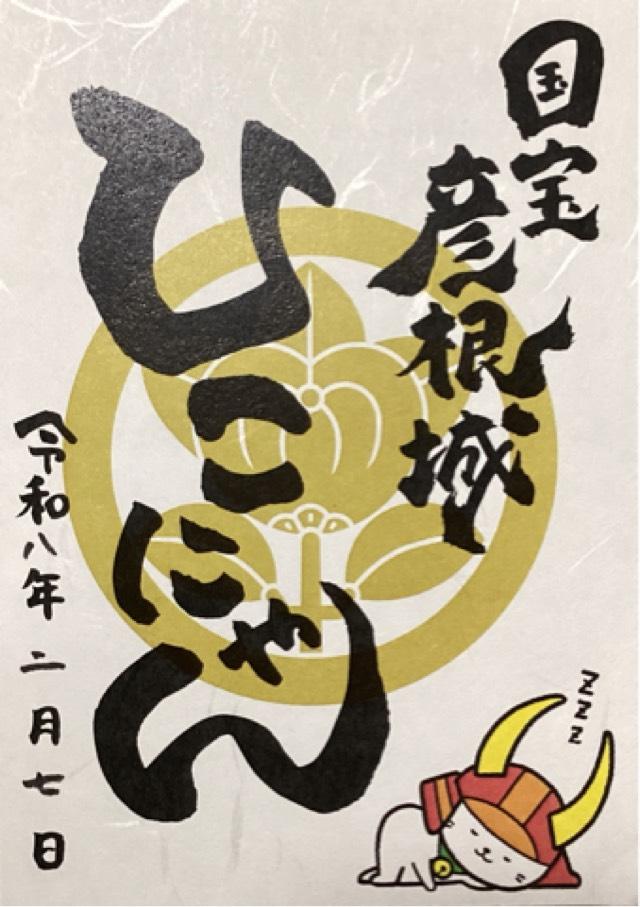 国宝
彦根城
ひこにゃん
令和八年二月七日
zzz